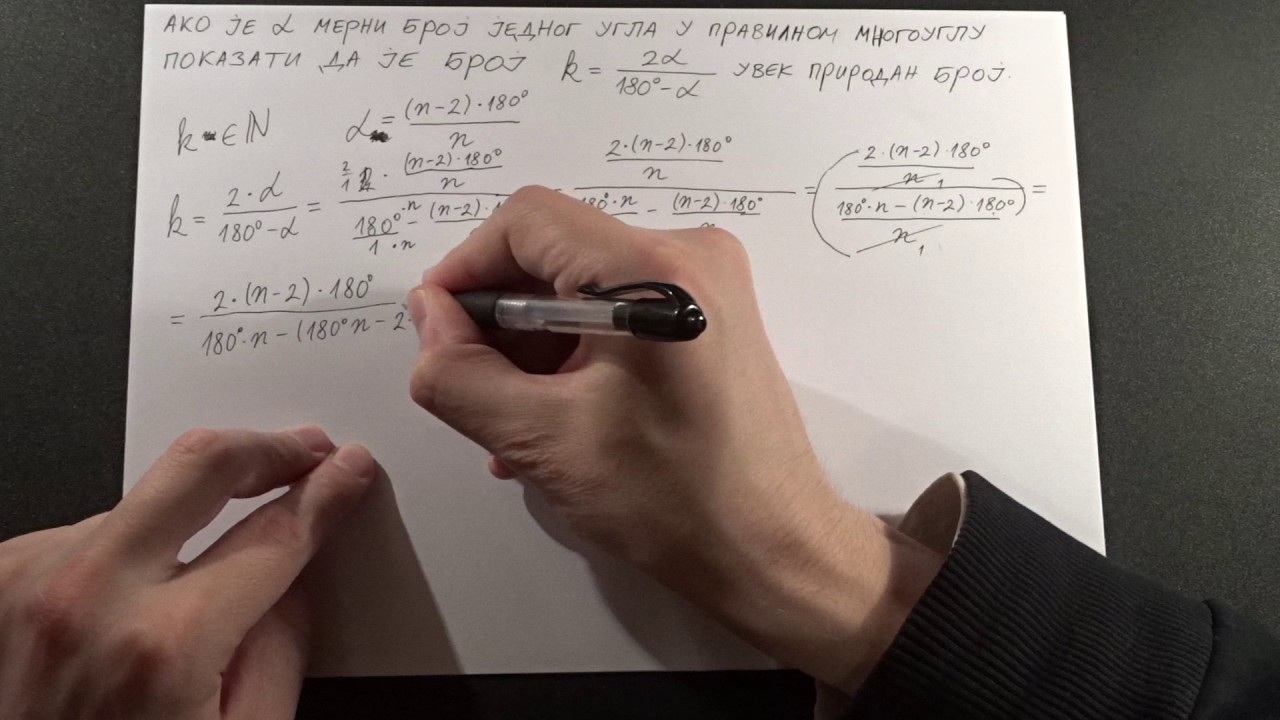 АКО ЈЕ α МЕРНИ БРОЈ ЈЕДНОГ УГЛА У ПРАВИЛНОМ МНОГОУГЛУ
ПОКАЗАТИ ДА ЈЕ БРОЈ k = 2α / (180° - α) УВЕК ПРИРОДАН БРОЈ.
k ∈ ℕ α = (n-2)·180° / n
k = 2·α / (180° - α) = (2/1 · (n-2)·180° / n) / (180°·n / 1·n - (n-2)·1 = (2·(n-2)·180° / n) / (180°·n - (n-2)·180° / n) = (2·(n-2)·180° / n 1) / (180°·n - (n-2)·180° / n 1) =
= 2·(n-2)·180° / 180°·n - (180°n - 2·